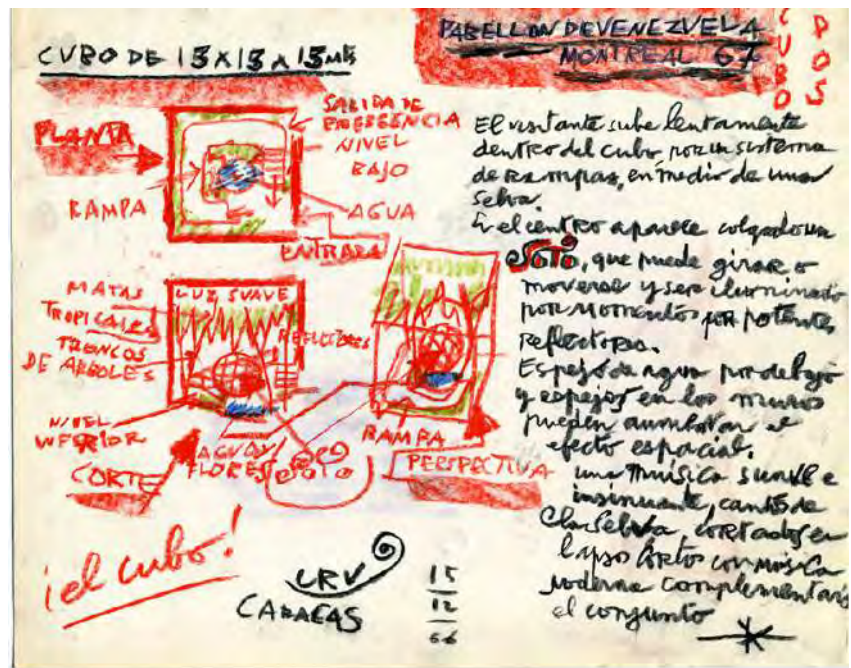 CUBO DE 15 X 15 X 15 Mts
PABELLON DE VENEZUELA
MONTREAL 67
CUBO
POS
PLANTA
SALIDA DE
EMERGENCIA
NIVEL
BAJO
RAMPA
AGUA
ENTRADA
MATAS
TROPICALES
TRONCOS
DE ARBOLES
LUZ SUAVE
REFLECTORES
NIVEL
INFERIOR
AGUA Y
FLORES
SOTO
CORTE
RAMPA
PERSPECTIVA
El visitante sube lentamente
dentro del cubo, por un sistema
de rampas, en medio de una
selva.
En el centro aparece colgado un
SOTO, que puede girar o
moverse y ser iluminado
por momentos por potentes
reflectores.
Espejo de agua por debajo
y espejos en los muros
pueden aumentar el
efecto espacial.
una música suave e
insinuante, cantos de
la selva, cortados en
lapsos cortos con música
moderna complementará
el conjunto
¡el cubo!
CRV
CARACAS
15
12
66